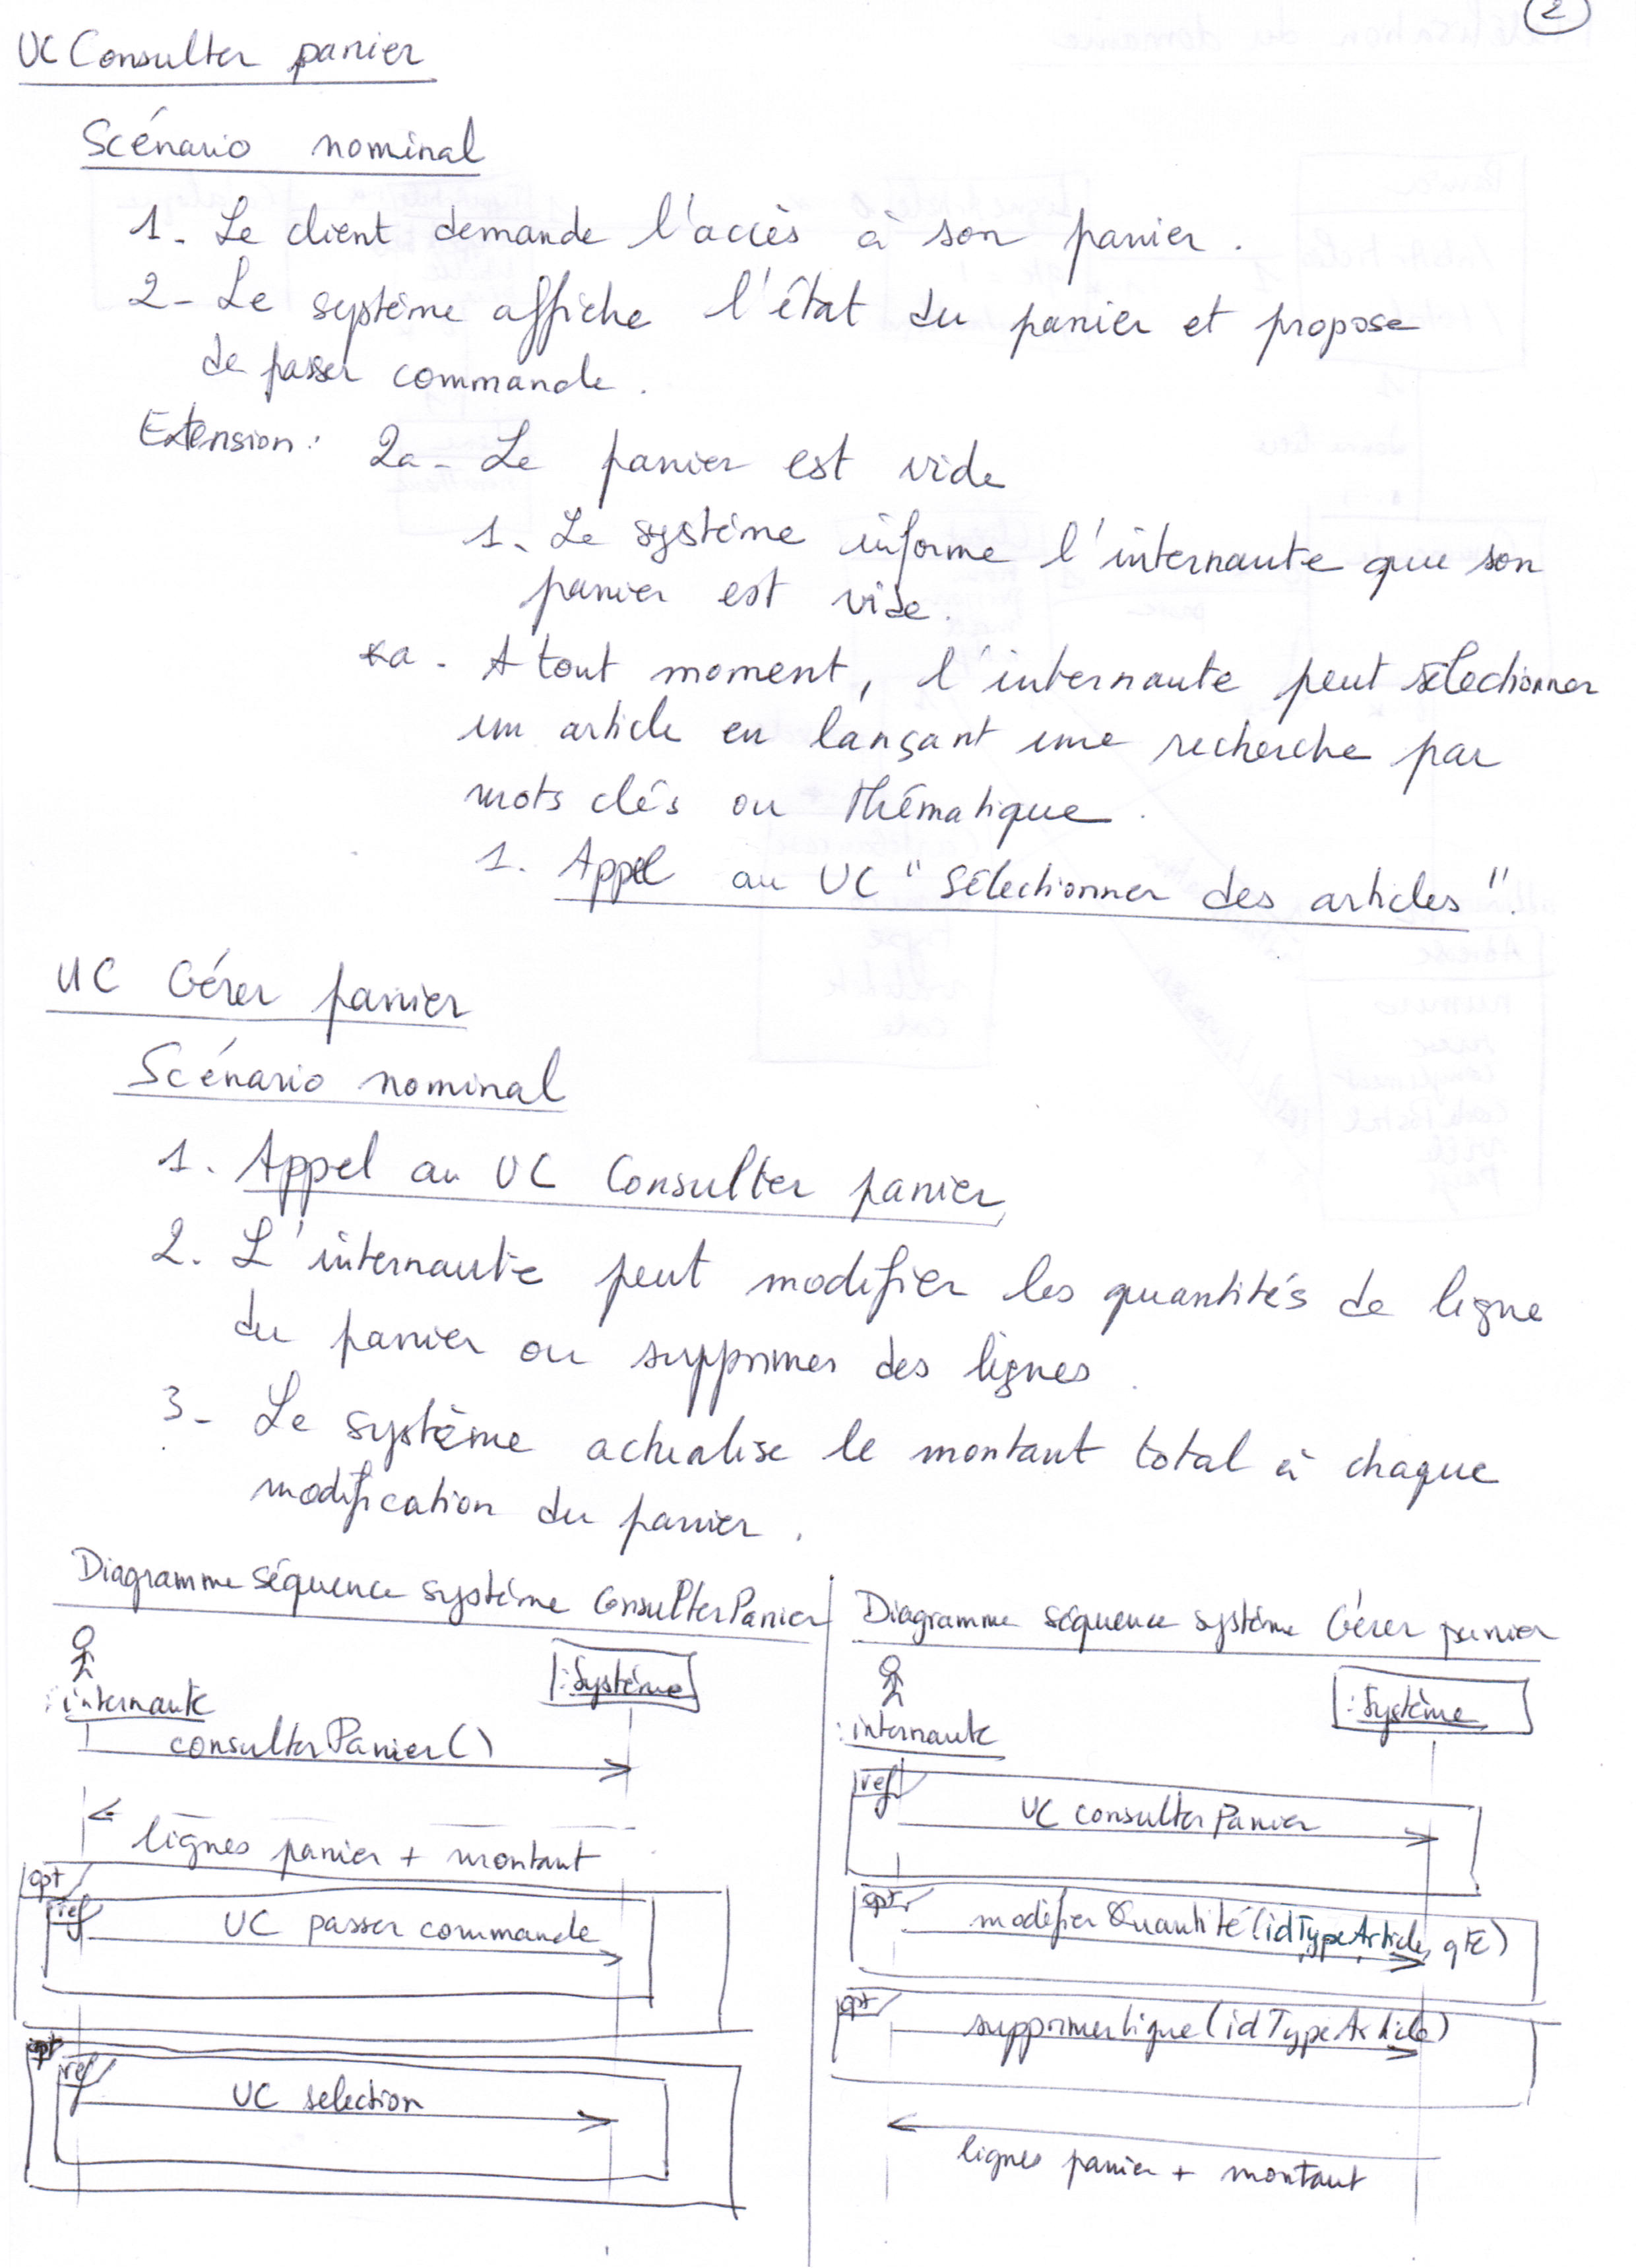 2
UC Consulter panier
Scénario nominal
1. Le client demande l'accès à son panier.
2- Le système affiche l'état du panier et propose
de passer commande.
Extension: 2a- Le panier est vide
1. Le système informe l'internaute que son
panier est vide.
*a. A tout moment, l'internaute peut sélectionner
un article en lançant une recherche par
mots clés ou thématique.
1. Appel au UC "Sélectionner des articles".
UC Gérer panier
Scénario nominal
1. Appel au UC Consulter panier
2. L'internaute peut modifier les quantités de ligne
du panier ou supprimer des lignes.
3- Le système actualise le montant total à chaque
modification du panier.
Diagramme séquence système ConsulterPanier
:internaute
:Système
consulterPanier()
lignes panier + montant
opt
ref
UC passer commande
opt
ref
UC selection
Diagramme séquence système Gérer panier
:internaute
:Système
ref
UC consulterPanier
opt
modifierQuantité(idTypeArticle, qté)
opt
supprimerligne(idTypeArticle)
lignes panier + montant